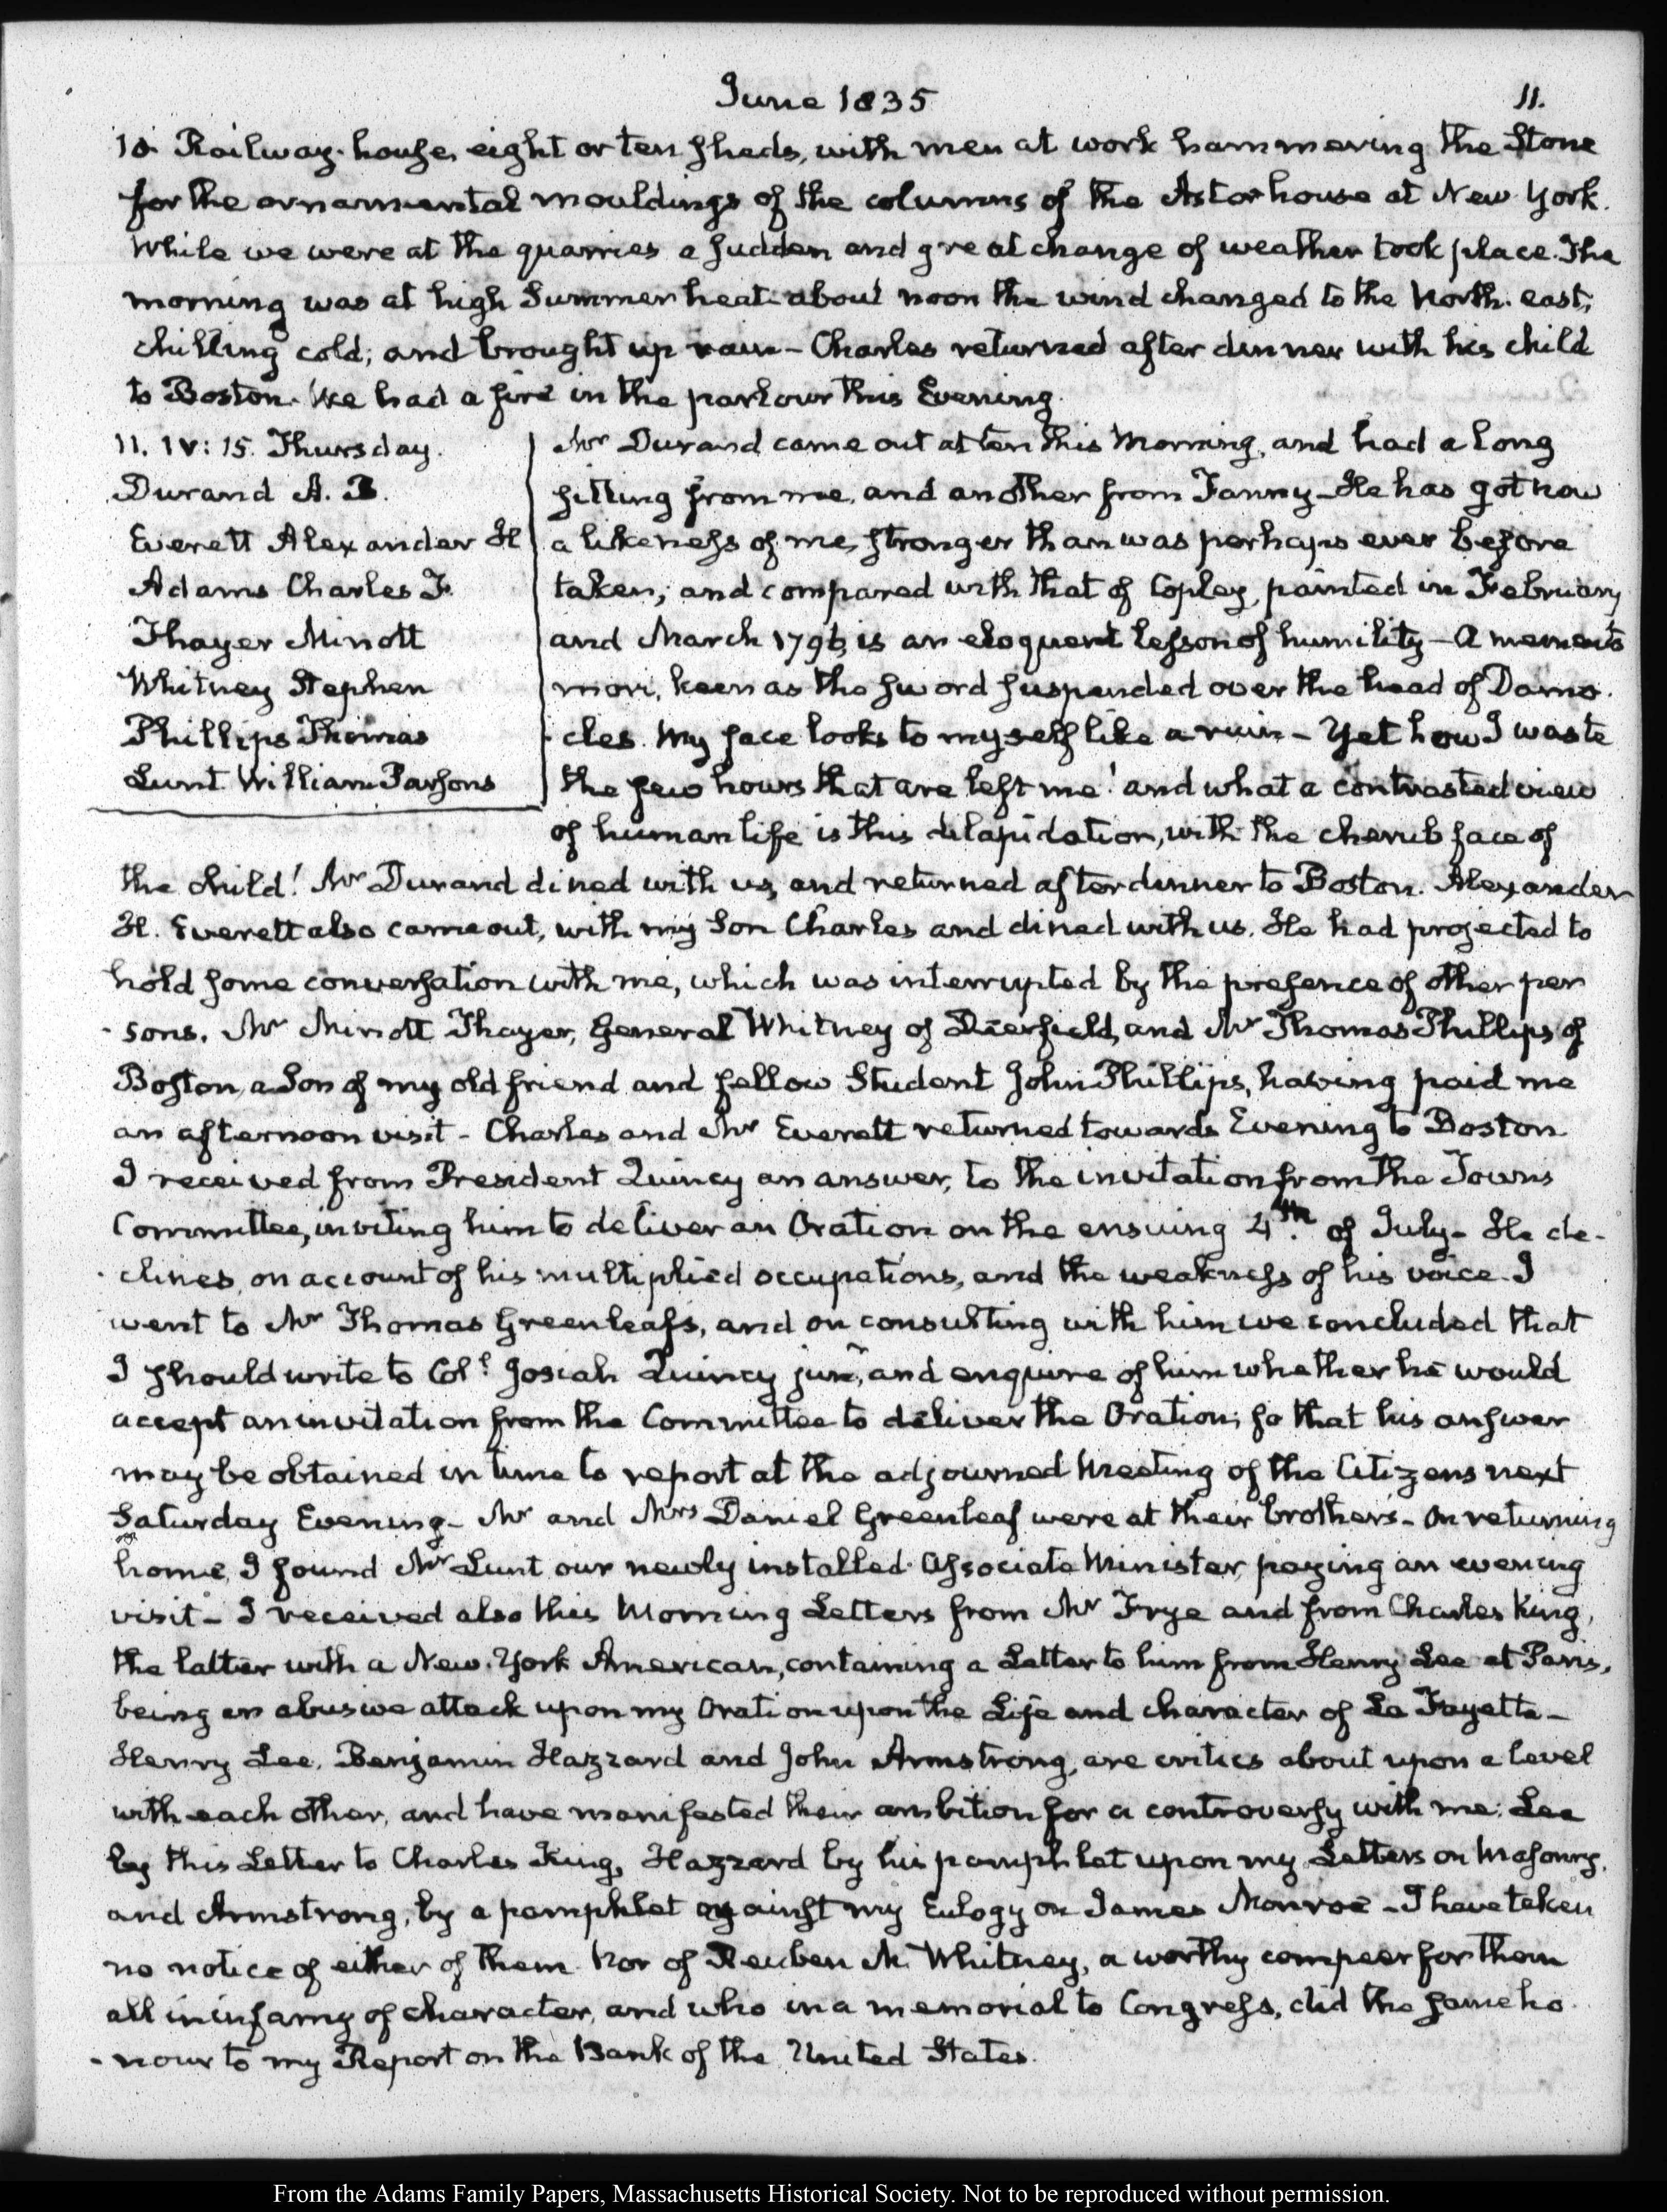 June 1835
11.
10 Railway house, eight or ten sheds, with men at work hammering the Stone
for the ornamental mouldings of the columns of the Astor house at New York.
While we were at the quarries a sudden and great change of weather took place. The
morning was at high Summer heat about noon the wind changed to the North-east,
chilling cold; and brought up rain – Charles returned after dinner with his child
to Boston. We had a fire in the parlour this Evening.
11. IV:15. Thursday.
Durand A. B.
Everett Alexander H
Adams Charles F.
Thayer Minott
Whitney Stephen
Phillips Thomas
Lunt William Parsons
Mr Durand came out at ten this Morning, and had a long
sitting from me, and another from Fanny – He has got now
a likeness of me, stronger than was perhaps ever before
taken; and compared with that of Copley, painted in February
and March 1796, is an eloquent lesson of humility – A memento
mori, keen as the sword suspended over the head of Damo-
-cles. My face looks to myself like a ruin – Yet how I waste
the few hours that are left me! and what a contrasted view
of human life is this delapidation, with the cherub face of
the child! Mr Durand dined with us, and returned after dinner to Boston. Alexander
H. Everett also came out, with my Son Charles and dined with us. He had projected to
hold some conversation with me, which was interrupted by the presence of other per
-sons. Mr Minott Thayer, General Whitney of Deerfield, and Mr Thomas Phillips of
Boston, a Son of my old friend and fellow Student John Phillips, having paid me
an afternoon visit – Charles and Mr Everett returned towards Evening to Boston
I received from President Quincy an answer, to the invitation from the Towns
Committee, inviting him to deliver an Oration on the ensuing 4th. of July – He de-
-clines, on account of his multiplied occupations, and the weakness of his voice. I
went to Mr Thomas Greenleaf's, and on consulting with him we concluded that
I should write to Coll. Josiah Quincy junr, and enquire of him whether he would
accept an invitation from the Committee to deliver the Oration; so that his answer
may be obtained in time to report at the adjourned Meeting of the Citizens next
Saturday Evening – Mr and Mrs Daniel Greenleaf were at their brother's – On returning
home, I found Mr Lunt our newly installed Associate Minister, paying an evening
visit – I received also this Morning Letters from Mr Frye and from Charles King,
the latter with a New-York American, containing a Letter to him from Henry Lee at Paris,
being an abusive attack upon my Oration upon the Life and character of La Fayette –
Henry Lee, Benjamin Hazzard and John Armstrong, are critics about upon a level
with each other, and have manifested their ambition for a controversy with me: Lee
by this Letter to Charles King, Hazzard by his pamphlet upon my Letters on Masonry,
and Armstrong, by a pamphlet against my Eulogy on James Monroe – I have taken
no notice of either of them. Nor of Reuben M. Whitney, a worthy compeer for them
all in infamy of character, and who in a memorial to Congress, did the same ho-
-nour to my Report on the Bank of the United States.
From the Adams Family Papers, Massachusetts Historical Society. Not to be reproduced without permission.